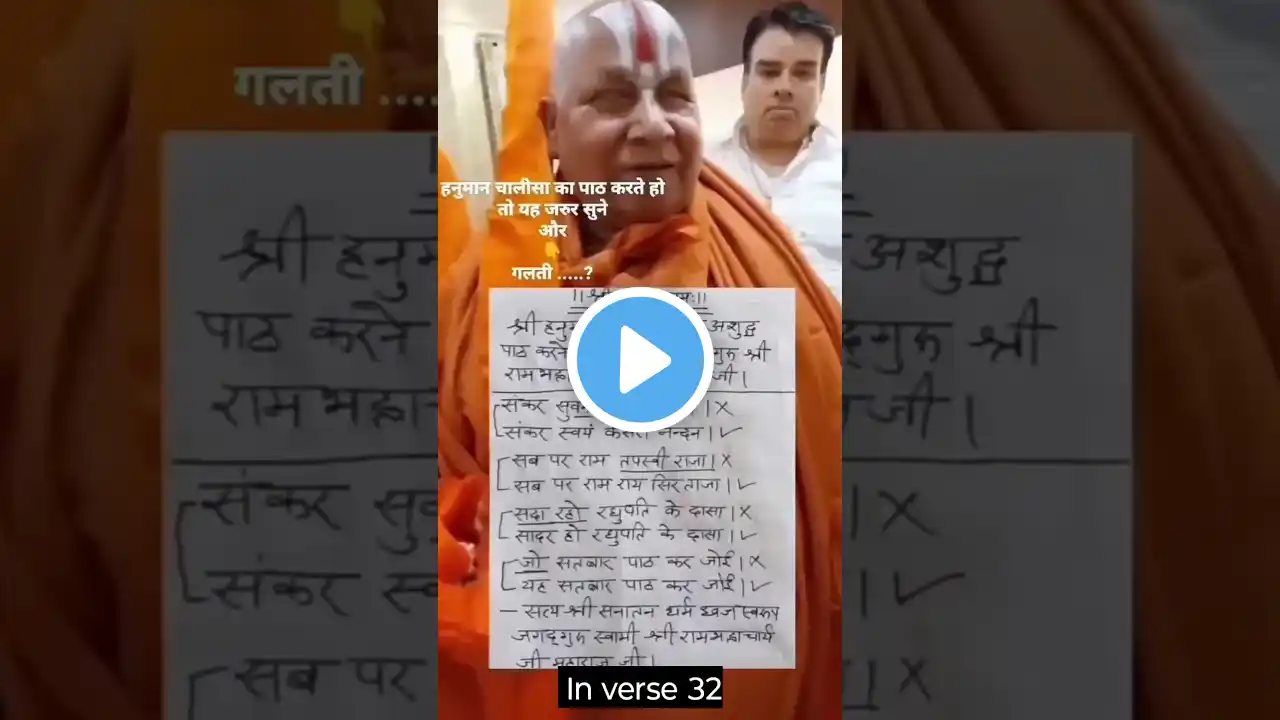 गलती .....
हनुमान चालीसा का पाठ करते हो
तो यह जरुर सुने
और
गलती .....?
श्री अशुद्ध
पाठ करने श्री
राम जी।
संकर ।×
संकर स्वयं नन्दन।✓
सब पर राम तपस्वी राजा।×
सब पर राम राय सिरताजा।✓
सदा रहो रघुपति के दासा।×
सादर हो रघुपति के दासा।✓
जो सतबार पाठ कर जोई।×
यह सतबार पाठ कर जोई।✓
– सत्य श्री सनातन धर्म ध्वज स्वरूप
जगद्गुरु स्वामी श्री रामभद्राचार्य
जी महाराज जी।
श्री अशुद्ध
पाठ करने श्री
रामभद्रा जी।
संकर ×
संकर ✓
सब पर ×
In verse 32